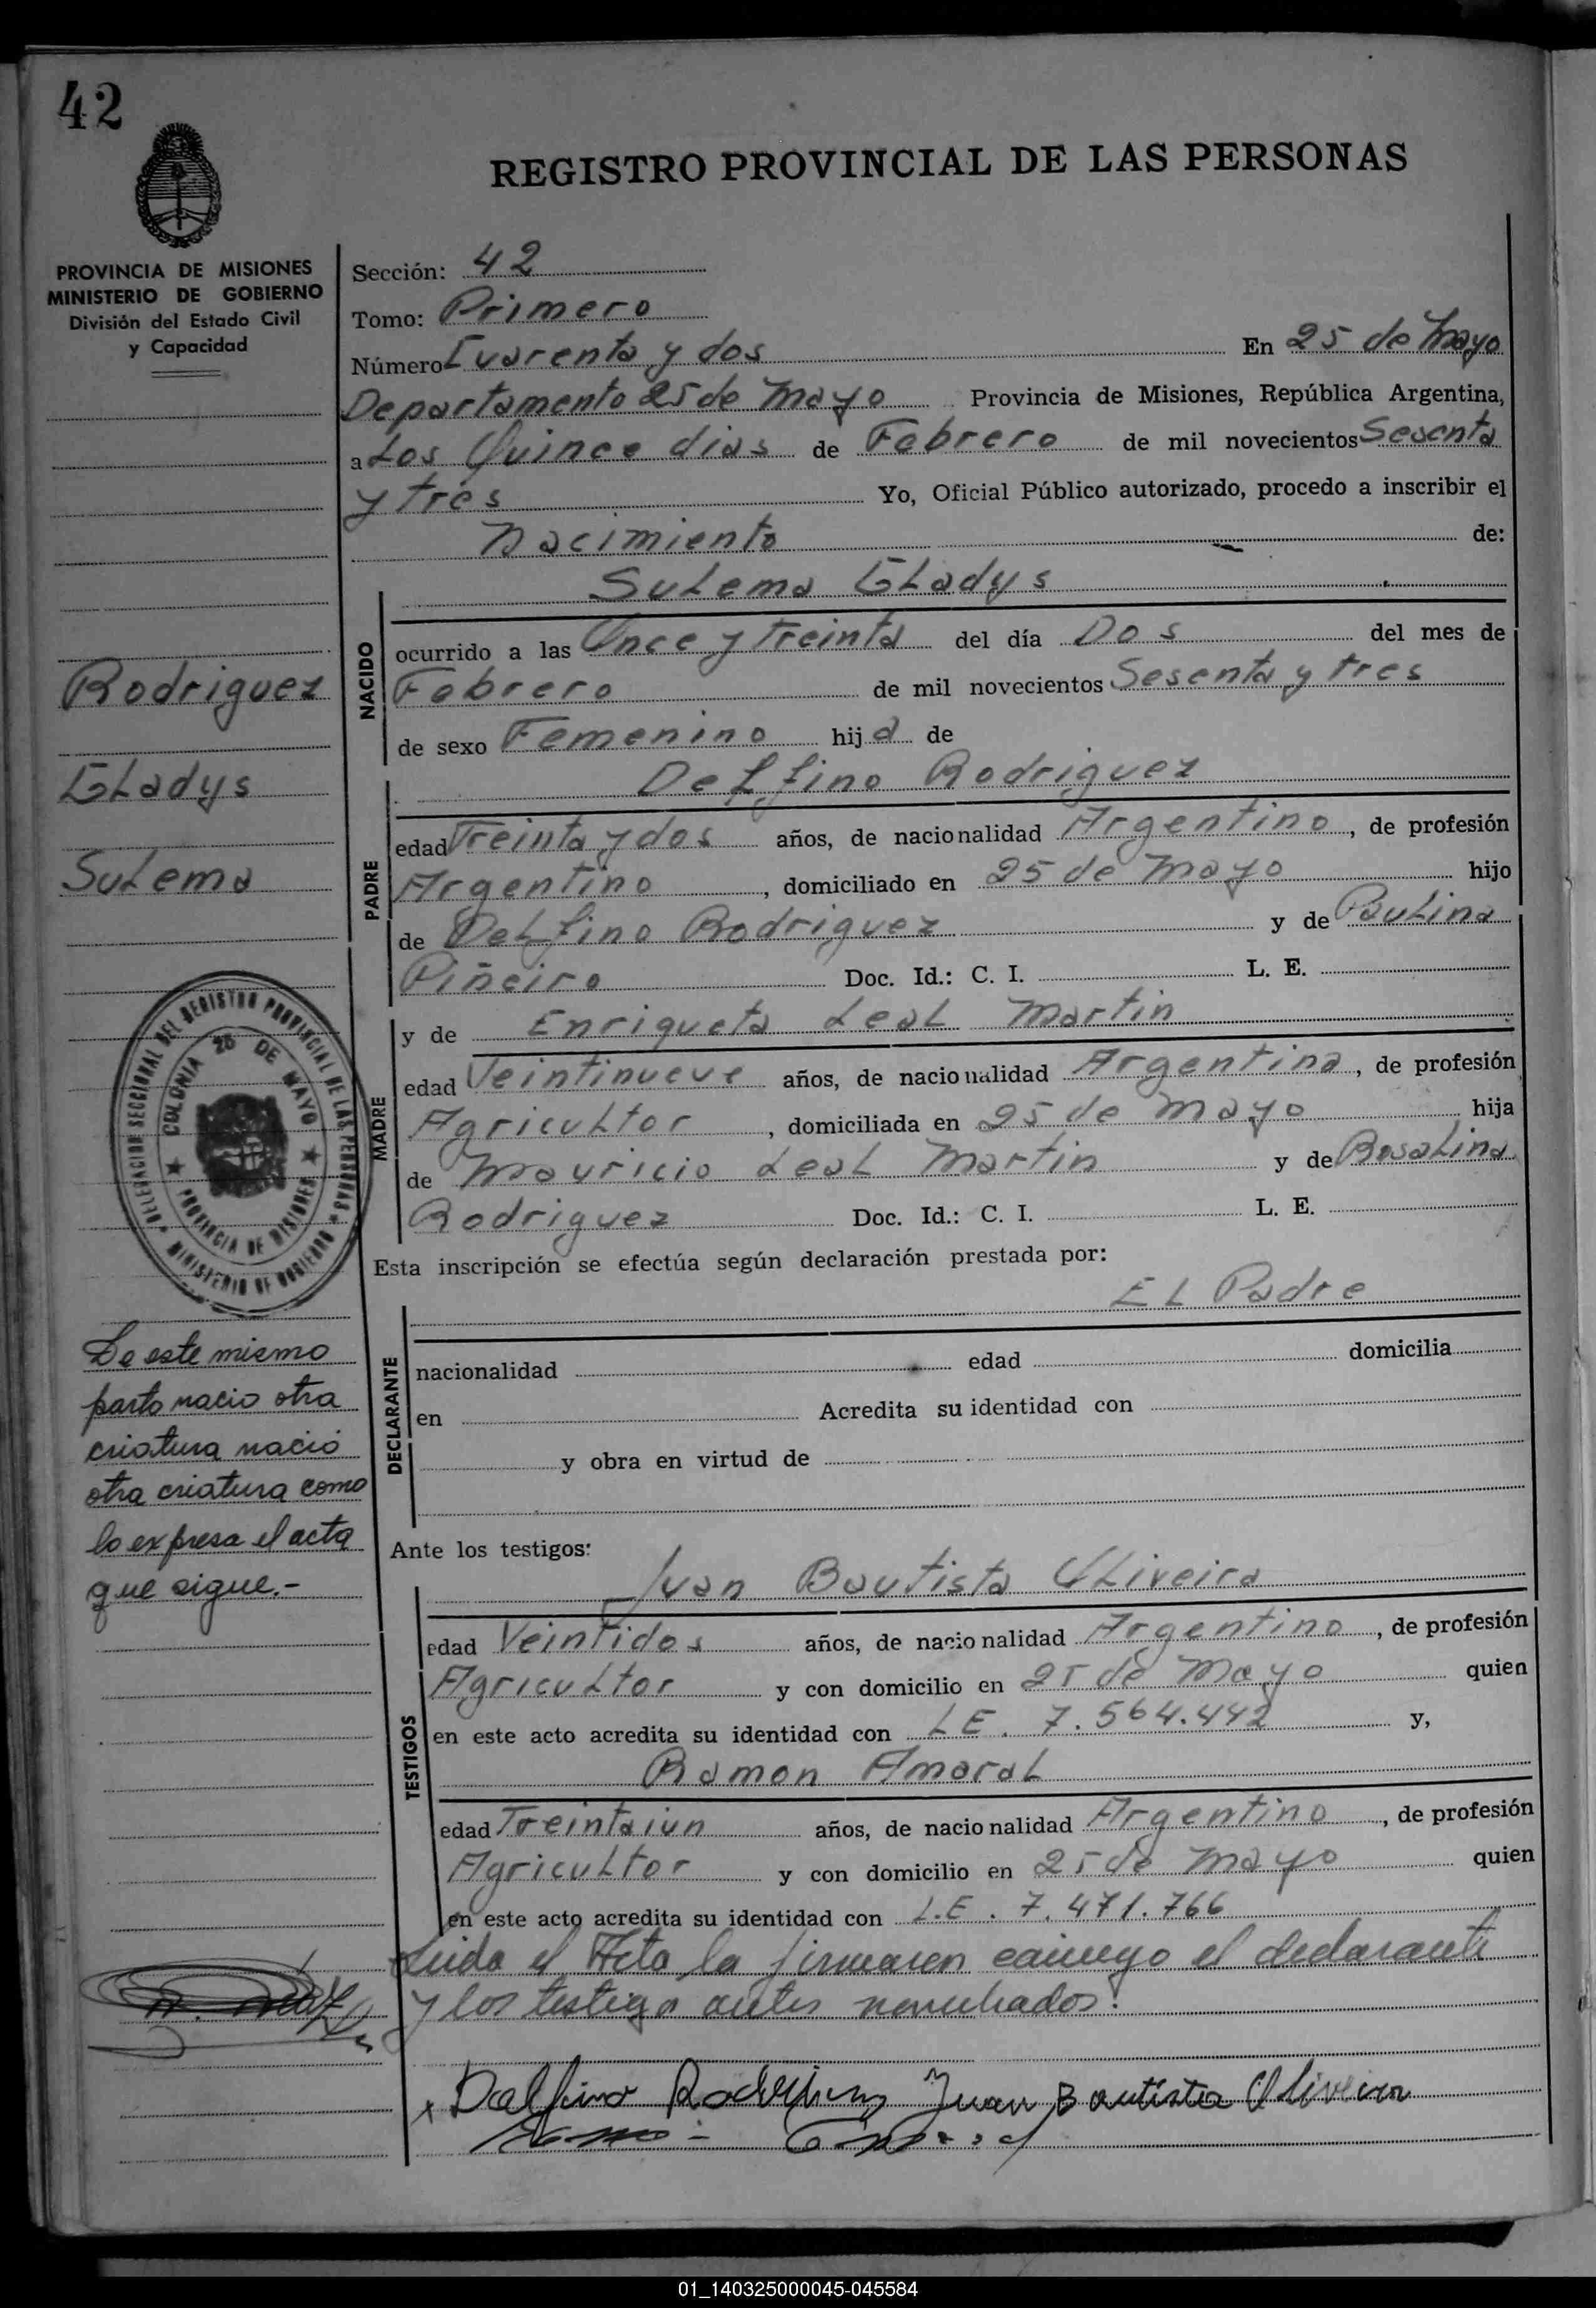 42
REGISTRO PROVINCIAL DE LAS PERSONAS
PROVINCIA DE MISIONES
MINISTERIO DE GOBIERNO
División del Estado Civil
y Capacidad
Sección: 42
Tomo: Primero
Número Cuarenta y dos En 25 de Mayo
Departamento 25 de Mayo Provincia de Misiones, República Argentina,
a Los Quince dias de Febrero de mil novecientos Sesenta
y tres Yo, Oficial Público autorizado, procedo a inscribir el
Nacimiento de:
Sulema Gladys
NACIDO
ocurrido a las Once y treinta del día Dos del mes de
Febrero de mil novecientos Sesenta y tres
de sexo Femenino hija de
Rodriguez
Gladys
Sulema
Delfino Rodriguez
PADRE
edad Treinta y dos años, de nacionalidad Argentino, de profesión
Argentino, domiciliado en 25 de Mayo hijo
de Delfino Rodriguez y de Paulina
Piñeiro Doc. Id.: C. I. L. E.
y de Enriqueta Leal Martin
MADRE
edad Veintinueve años, de nacionalidad Argentina, de profesión
Agricultor, domiciliada en 25 de Mayo hija
de Mauricio Leal Martin y de Rosalina
Rodriguez Doc. Id.: C. I. L. E.
DELEGACION SECCIONAL DEL REGISTRO PROVINCIAL DE LAS PERSONAS
MINISTERIO DE GOBIERNO
COLONIA 25 DE MAYO
PROVINCIA DE MISIONES
Esta inscripción se efectúa según declaración prestada por:
El Padre
DECLARANTE
nacionalidad edad domicilia
en Acredita su identidad con
y obra en virtud de
De este mismo
parto nacio otra
criatura nació
otra criatura como
lo expresa el acta
que sigue.-
Ante los testigos:
Juan Bautista Oliveira
TESTIGOS
edad Veintidos años, de nacionalidad Argentino, de profesión
Agricultor y con domicilio en 25 de Mayo quien
en este acto acredita su identidad con L E. 7.564.442 y,
Ramon Amaral
edad Treintaiun años, de nacionalidad Argentino, de profesión
Agricultor y con domicilio en 25 de Mayo quien
en este acto acredita su identidad con L.E. 7.471.766
Leida el Acta la firmaron conmigo el declarante
y los testigo antes nombrados.
Delfino Rodriguez Juan Bautista Oliveira
01_140325000045-045584